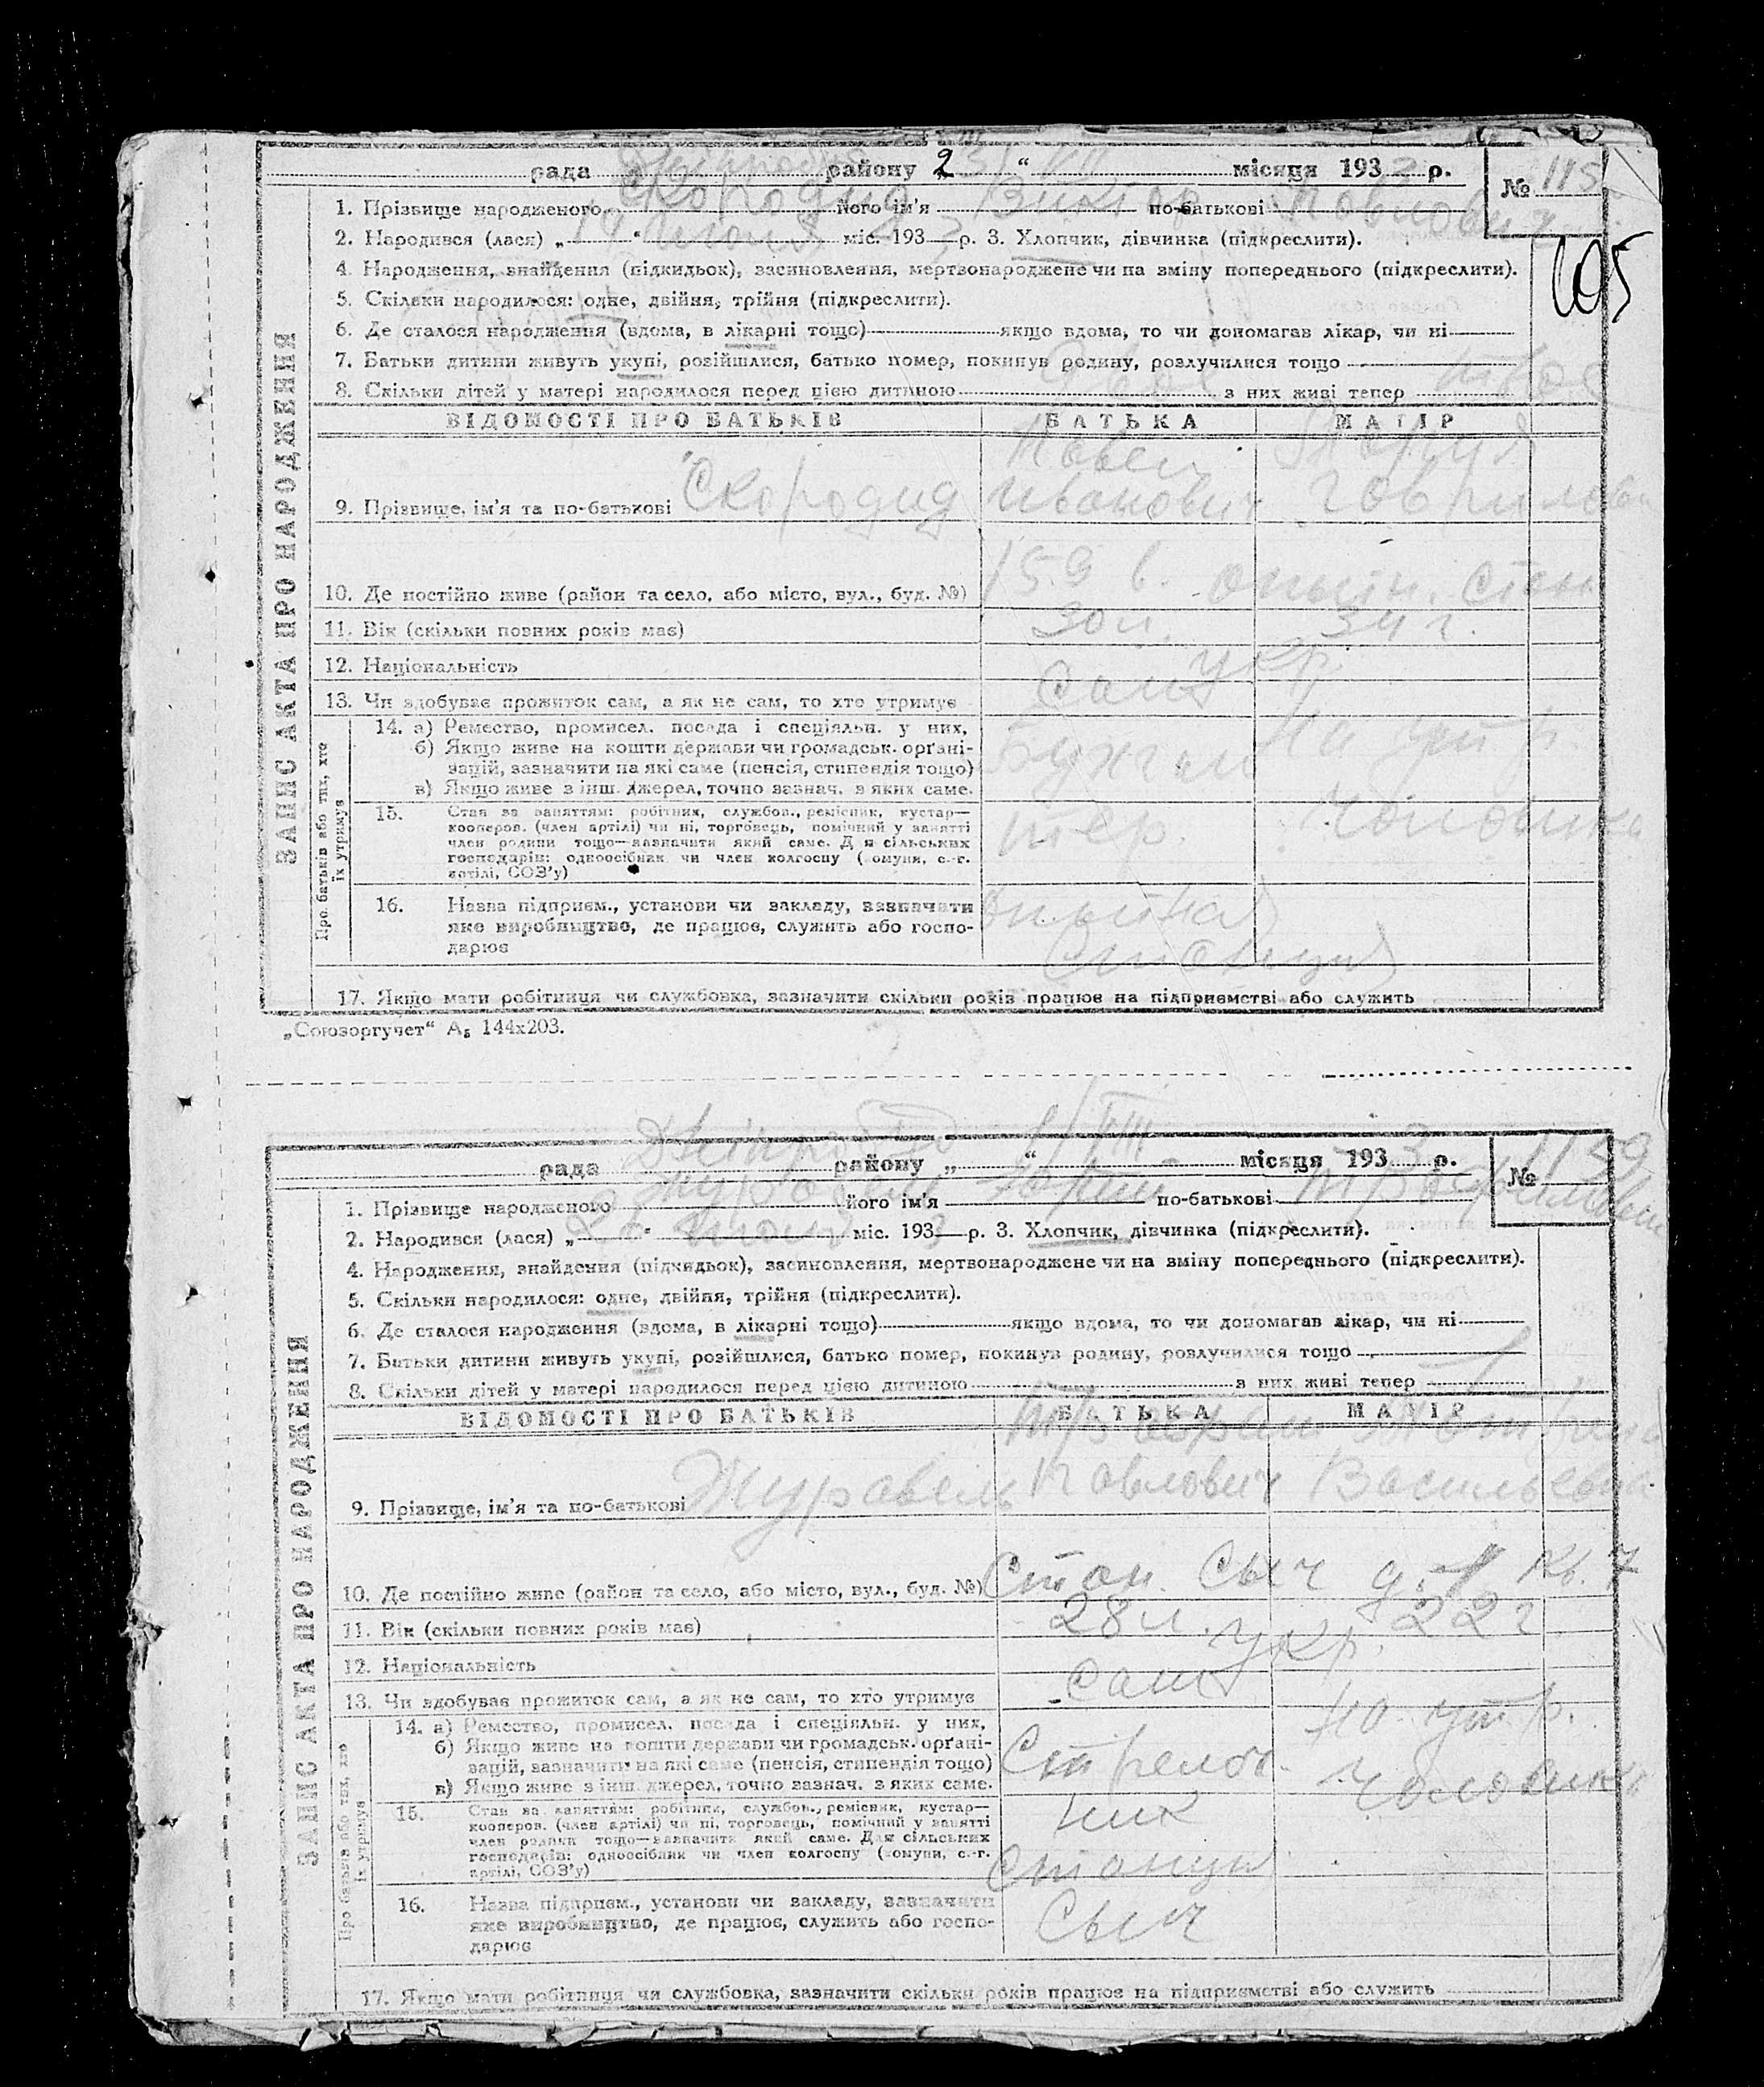 рада району „ 2 “ місяця 193 р. № 115
1. Прізвище народженого Скородид його ім'я Віктор по-батькові Павлович
105
2. Народився (лася) „ 14 “ июня міс. 193 р. 3. Хлопчик, дівчинка (підкреслити).
4. Народження, знайдення (підкидьок), засиновлення, мертвонароджене чи на зміну попереднього (підкреслити).
5. Скільки народилося: одне, двійня, трійня (підкреслити).
6. Де сталося народження (вдома, в лікарні тощо) якщо вдома, то чи допомагав лікар, чи ні
7. Батьки дитини живуть укупі, розійшлися, батько помер, покинув родину, розлучилися тощо
8. Скільки дітей у матері народилося перед цією дитиною з них живі тепер
ВІДОМОСТІ ПРО БАТЬКІВ БАТЬКА МАТІР
Павел Мария
9. Прізвище, ім'я та по-батькові Скородид Иванович Гаврилов
10. Де постійно живе (район та село, або місто, вул., буд. №) 159 в. опытн. стан
11. Вік (скільки повних років має) 30 л. 34 г.
12. Національність укр.
13. Чи здобуває прожиток сам, а як не сам, то хто утримує сам
14. а) Ремество, промисел. посада і спеціяльн. у них, Бухгал на утр
б) Якщо живе на кошти держави чи громадськ. орґані-
зацій, зазначити на які саме (пенсія, стипендія тощо)
в) Якщо живе з інш. джерел, точно зазнач. з яких саме.
15. Стан за заняттям: робітник, службов., ремісник, кустар— тер. чоловика
кооперов. (член артілі) чи ні, торговець, помічний у занятті
член родини тощо—зазначити який саме. Для сільських
господарів: одноосібник чи член колгоспу (комуни, с.-г.
артілі, СОЗ'у)
16. Назва підприєм., установи чи закладу, зазначити опытная
яке виробництво, де працює, служить або госпо- станция
дарює
17. Якщо мати робітниця чи службовка, зазначити скільки років працює на підприємстві або служить
ЗАПИС АКТА ПРО НАРОДЖЕННЯ
Про батьків або тих, хто
їх утримує
„Союзоргучет“ А₅ 144х203.
рада району „ 1/VIII “ місяця 193 3 р. № 1159
1. Прізвище народженого Журавель його ім'я по-батькові
2. Народився (лася) „ “ міс. 193 3 р. 3. Хлопчик, дівчинка (підкреслити).
4. Народження, знайдення (підкидьок), засиновлення, мертвонароджене чи на зміну попереднього (підкреслити).
5. Скільки народилося: одне, двійня, трійня (підкреслити).
6. Де сталося народження (вдома, в лікарні тощо) якщо вдома, то чи допомагав лікар, чи ні
7. Батьки дитини живуть укупі, розійшлися, батько помер, покинув родину, розлучилися тощо
8. Скільки дітей у матері народилося перед цією дитиною з них живі тепер
ВІДОМОСТІ ПРО БАТЬКІВ БАТЬКА МАТІР
9. Прізвище, ім'я та по-батькові Журавель Павлович Васильевна
10. Де постійно живе (район та село, або місто, вул., буд. №) Стан. Сыч д. 1 кв. 7
11. Вік (скільки повних років має) 28 л. 22 г
12. Національність укр.
13. Чи здобуває прожиток сам, а як не сам, то хто утримує сам
14. а) Ремество, промисел. посада і спеціяльн. у них, на утр.
б) Якщо живе на кошти держави чи громадськ. орґані-
зацій, зазначити на які саме (пенсія, стипендія тощо) Стрелоч-
в) Якщо живе з інш. джерел, точно зазнач. з яких саме. чоловика
15. Стан за заняттям: робітник, службов., ремісник, кустар— ник
кооперов. (член артілі) чи ні, торговець, помічний у занятті
член родини тощо—зазначити який саме. Для сільських
господарів: одноосібник чи член колгоспу (комуни, с.-г.
артілі, СОЗ'у) Станция
16. Назва підприєм., установи чи закладу, зазначити Сыч
яке виробництво, де працює, служить або госпо-
дарює
17. Якщо мати робітниця чи службовка, зазначити скільки років працює на підприємстві або служить
ЗАПИС АКТА ПРО НАРОДЖЕННЯ
Про батьків або тих, хто
їх утримує